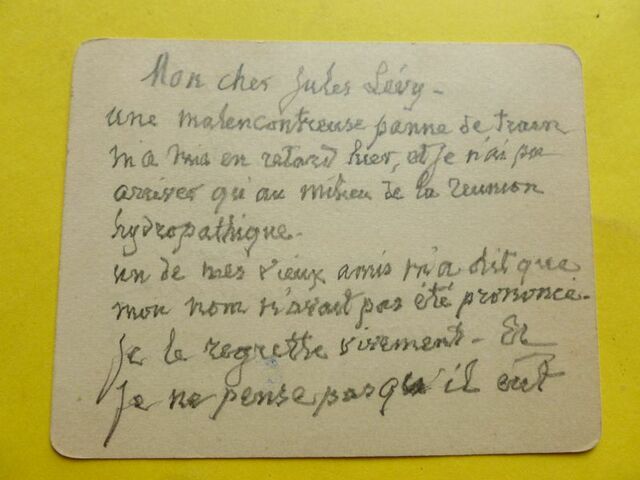 Mon cher Jules Lévy -
une malencontreuse panne de train
m'a mis en retard hier, et je n'ai pu
arriver qu'au milieu de la reunion
hydropathique.
un de mes vieux amis m'a dit que
mon nom n'avait pas été prononcé.
Je le regrette vivement - Et
Je ne pense pas qu'il eut